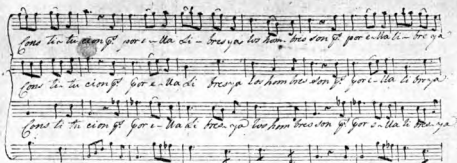 Cons ti- tu cion qe. por e- lla li- bres ya los hom- bres son qe. por e- lla li- bres ya
Cons ti- tu cion qe. por e- lla li bres ya los hom bres son qe. por e- lla li bres ya
Cons ti tu cion qe. por e- lla li bres- ya los hom bres son qe. por e- lla li bres- ya